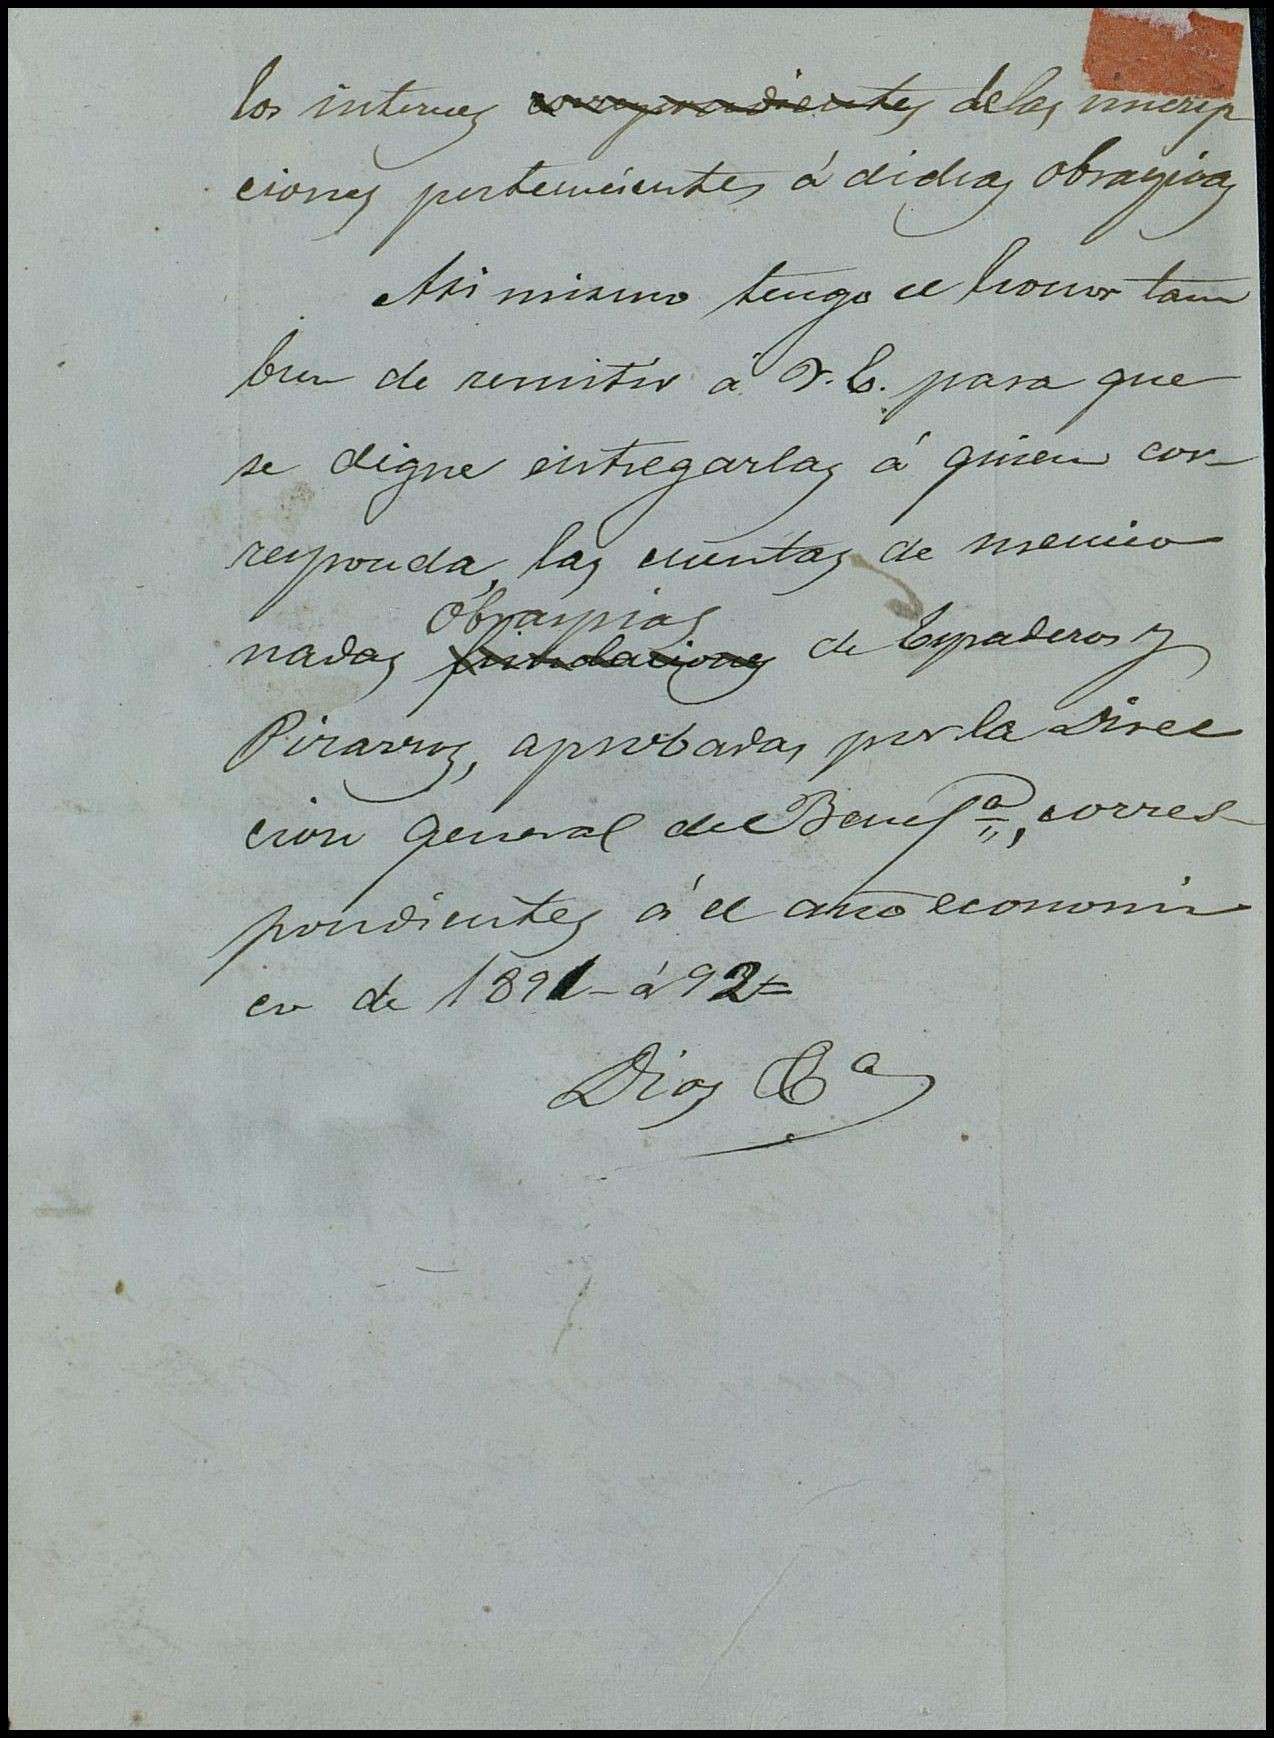 los intereses correspondientes de las inscrip
ciones pertenecientes á dichas Obraspias
Asi mismo tengo el honor tam
bien de remitir á V. E. para que
se digne entregarlas á quien cor-
responda, las cuentas de mencio
Obraspias
nadas fundaciones de Espaderos y
Pizarros, aprobadas por la Direc
cion general de Benefª, corres-
pondientes á el año economi
co de 1891- á 92=
Dios &ª